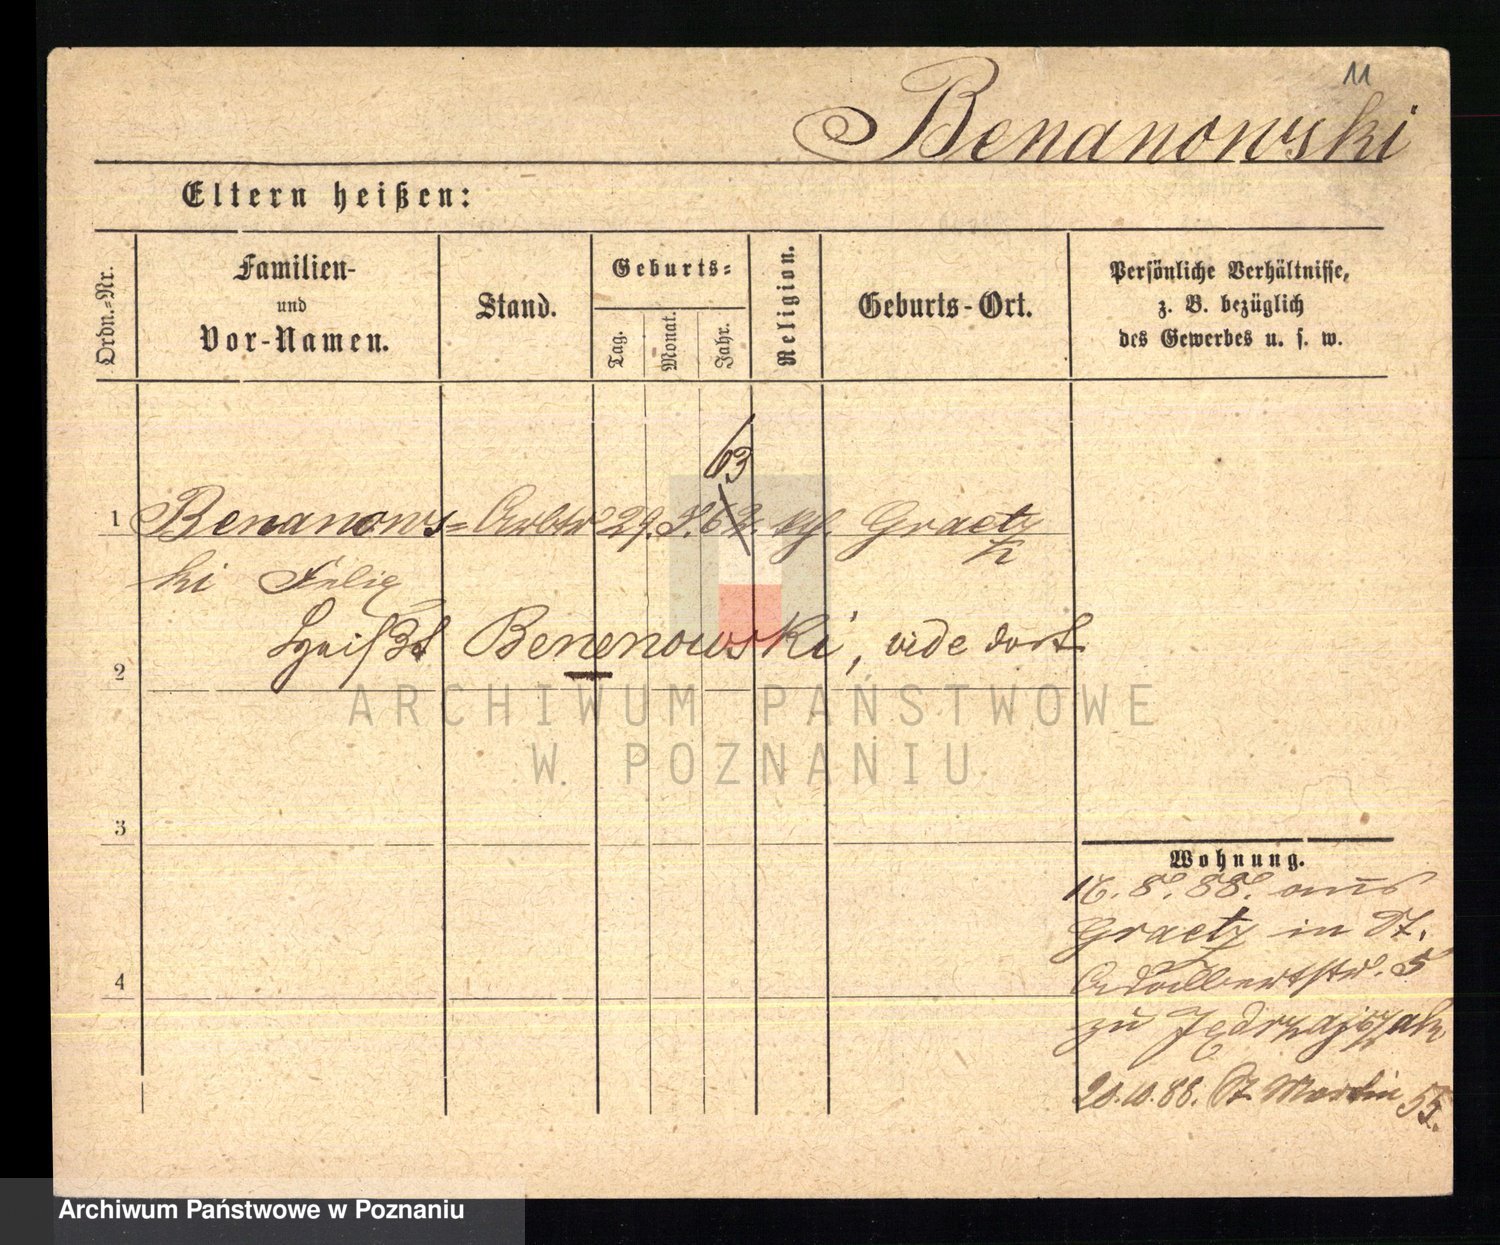 11
Benanowski
Eltern heißen:
Ordn.-Nr.
Familien-
und
Vor-Namen.
Stand.
Geburts-
Tag.
Monat.
Jahr.
Religion.
Geburts-Ort.
Persönliche Verhältnisse,
z. B. bezüglich
des Gewerbes u. s. w.
63
1 Benanows= 29. 62. kth. Graetz
ki Felix
2 heißt Benenowski, vide dort
ARCHIWUM PAŃSTWOWE
W POZNANIU
3
Wohnung.
16. 8. 88. aus
Graetz in St.
Adalbertstr. 5
4
zu
20.10.88. St. Martin 55.
Archiwum Państwowe w Poznaniu